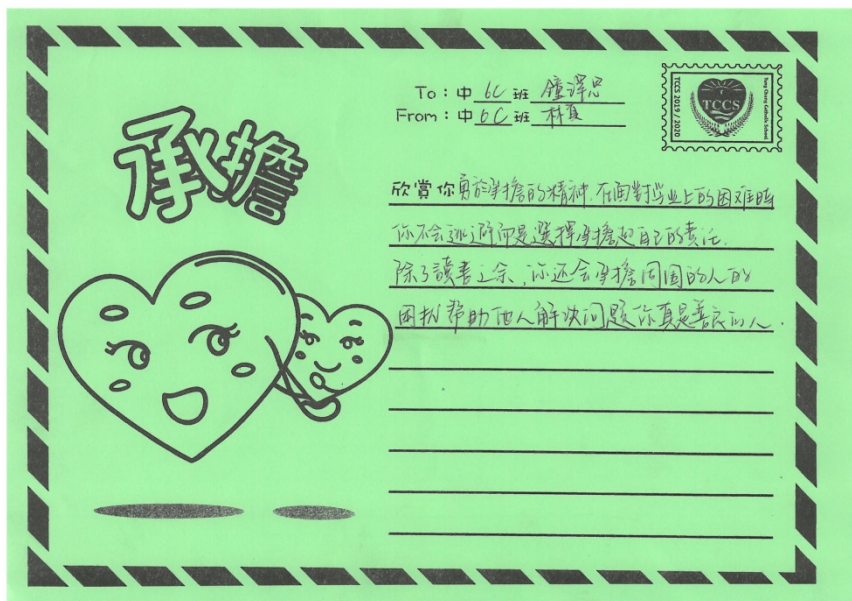 承擔
To：中 6C 班 鐘澤思
From：中 6C 班 林夏
TCCS 2019 / 2020
TCCS
Tung Chung Catholic School
欣賞你勇於承擔的精神.在面對学业上的困难時
你不会逃避而是選擇承擔起自己的責任.
除了讀書之余,你还会承擔周围的人的
困扰帮助他人解决问题你真是善良的人.